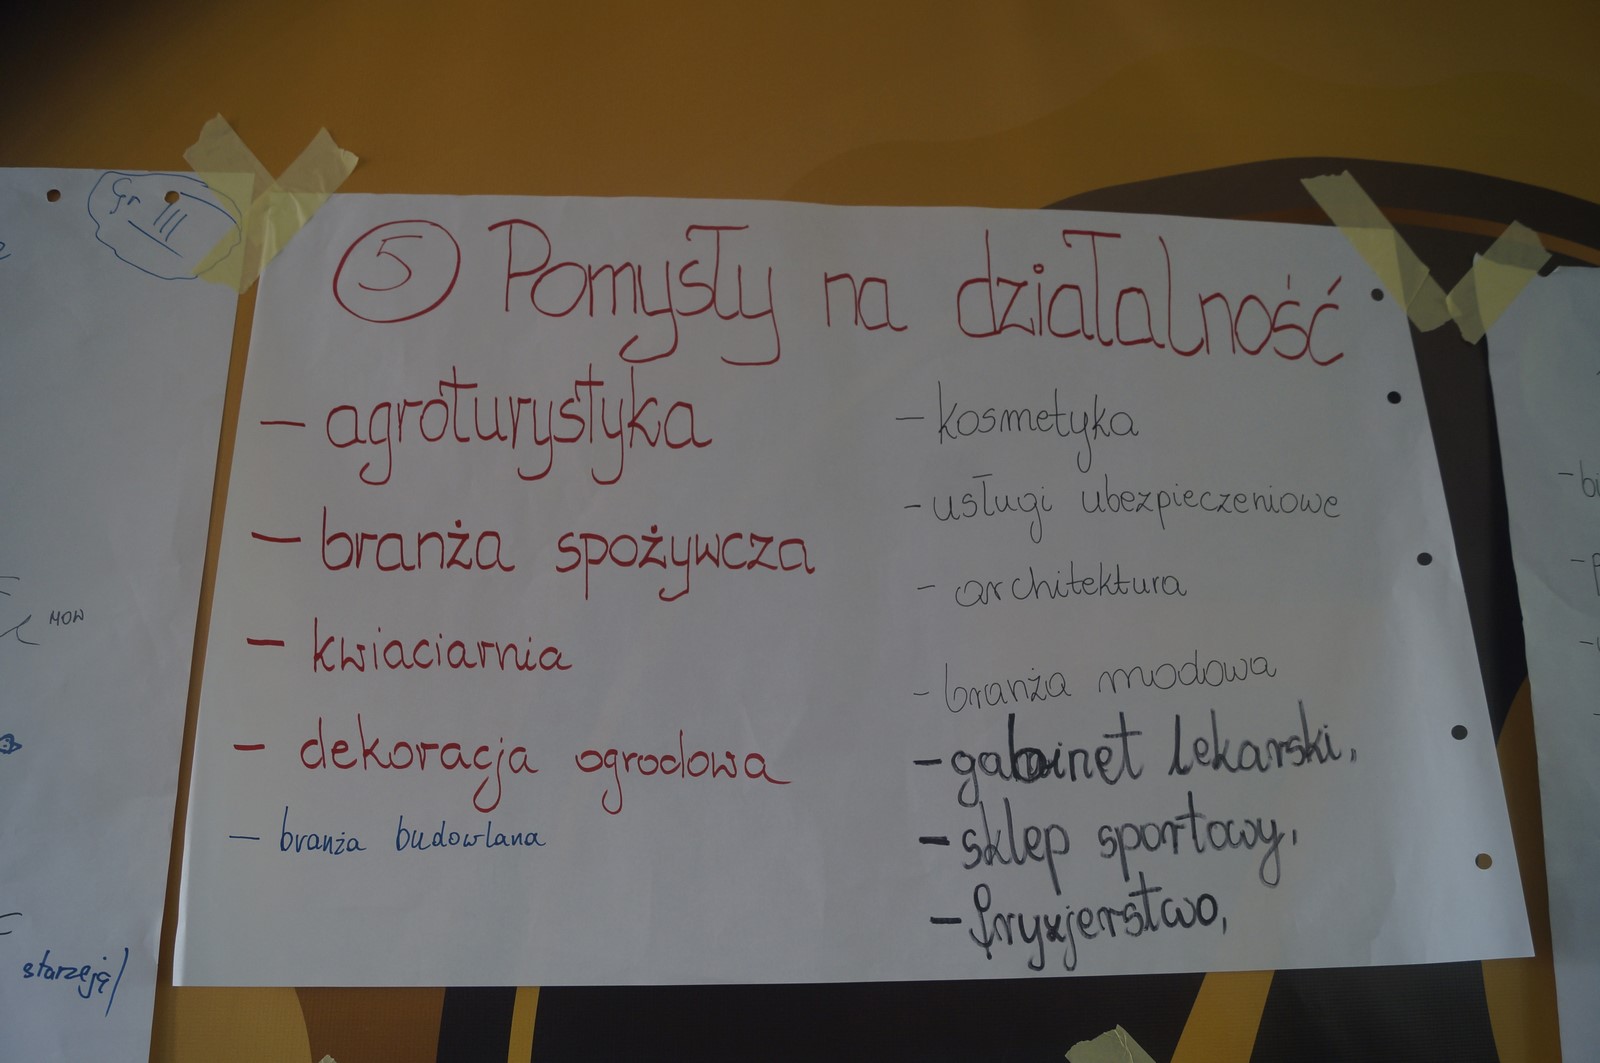 Gr III
⑤ Pomysły na działalność
– agroturystyka
– branża spożywcza
– kwiaciarnia
– dekoracja ogrodowa
– branża budowlana
– kosmetyka
– usługi ubezpieczeniowe
– architektura
– branża modowa
– gabinet lekarski,
– sklep sportowy,
– fryzjerstwo,
MOW
starzeją/